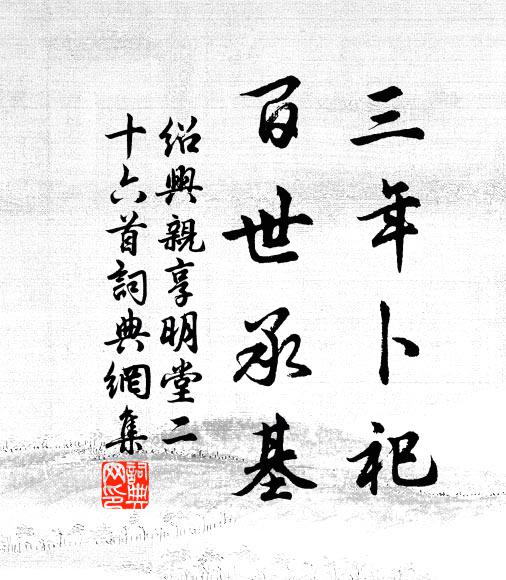 三年卜祀
百世承基
绍興親享明堂二
十六首詞典網集
詞典网印